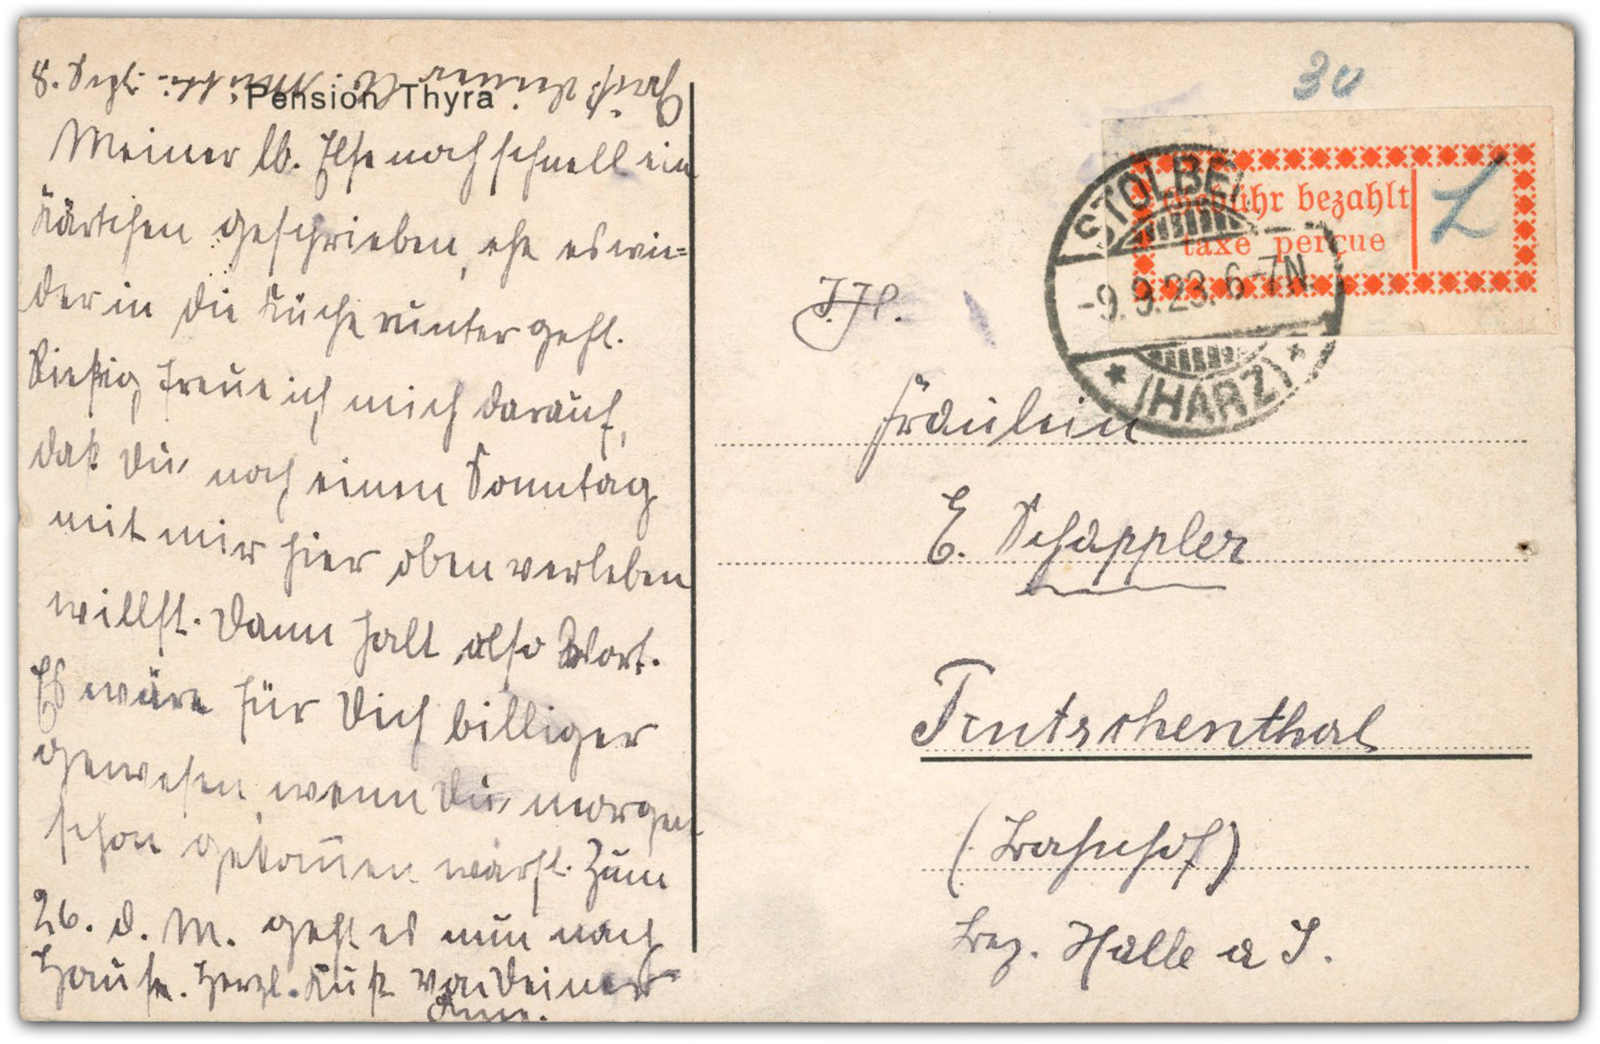 8. Sept.
Pension Thyra.
Meiner lb. Ilse noch schnell ein
Kärtchen geschrieben, ehe es wie=
der in die Küche runter geht.
Riesig freue ich mich darauf,
daß Du, noch einen Sonntag
mit mir hier oben verleben
willst. Dann halt also Wort.
Es wäre für Dich billiger
gewesen, wenn Du, morgen
schon gekommen wärst. Zum
26. d. M. geht es nun nach
Hause. Herzl. Kuß von Deiner
30
Gebühr bezahlt
taxe perçue
STOLBE
-9.9.23.6-7N.
* (HARZ) *
Fräulein
E. Schappler
Teutschenthal
(Bahnhof)
Bez. Halle a S.